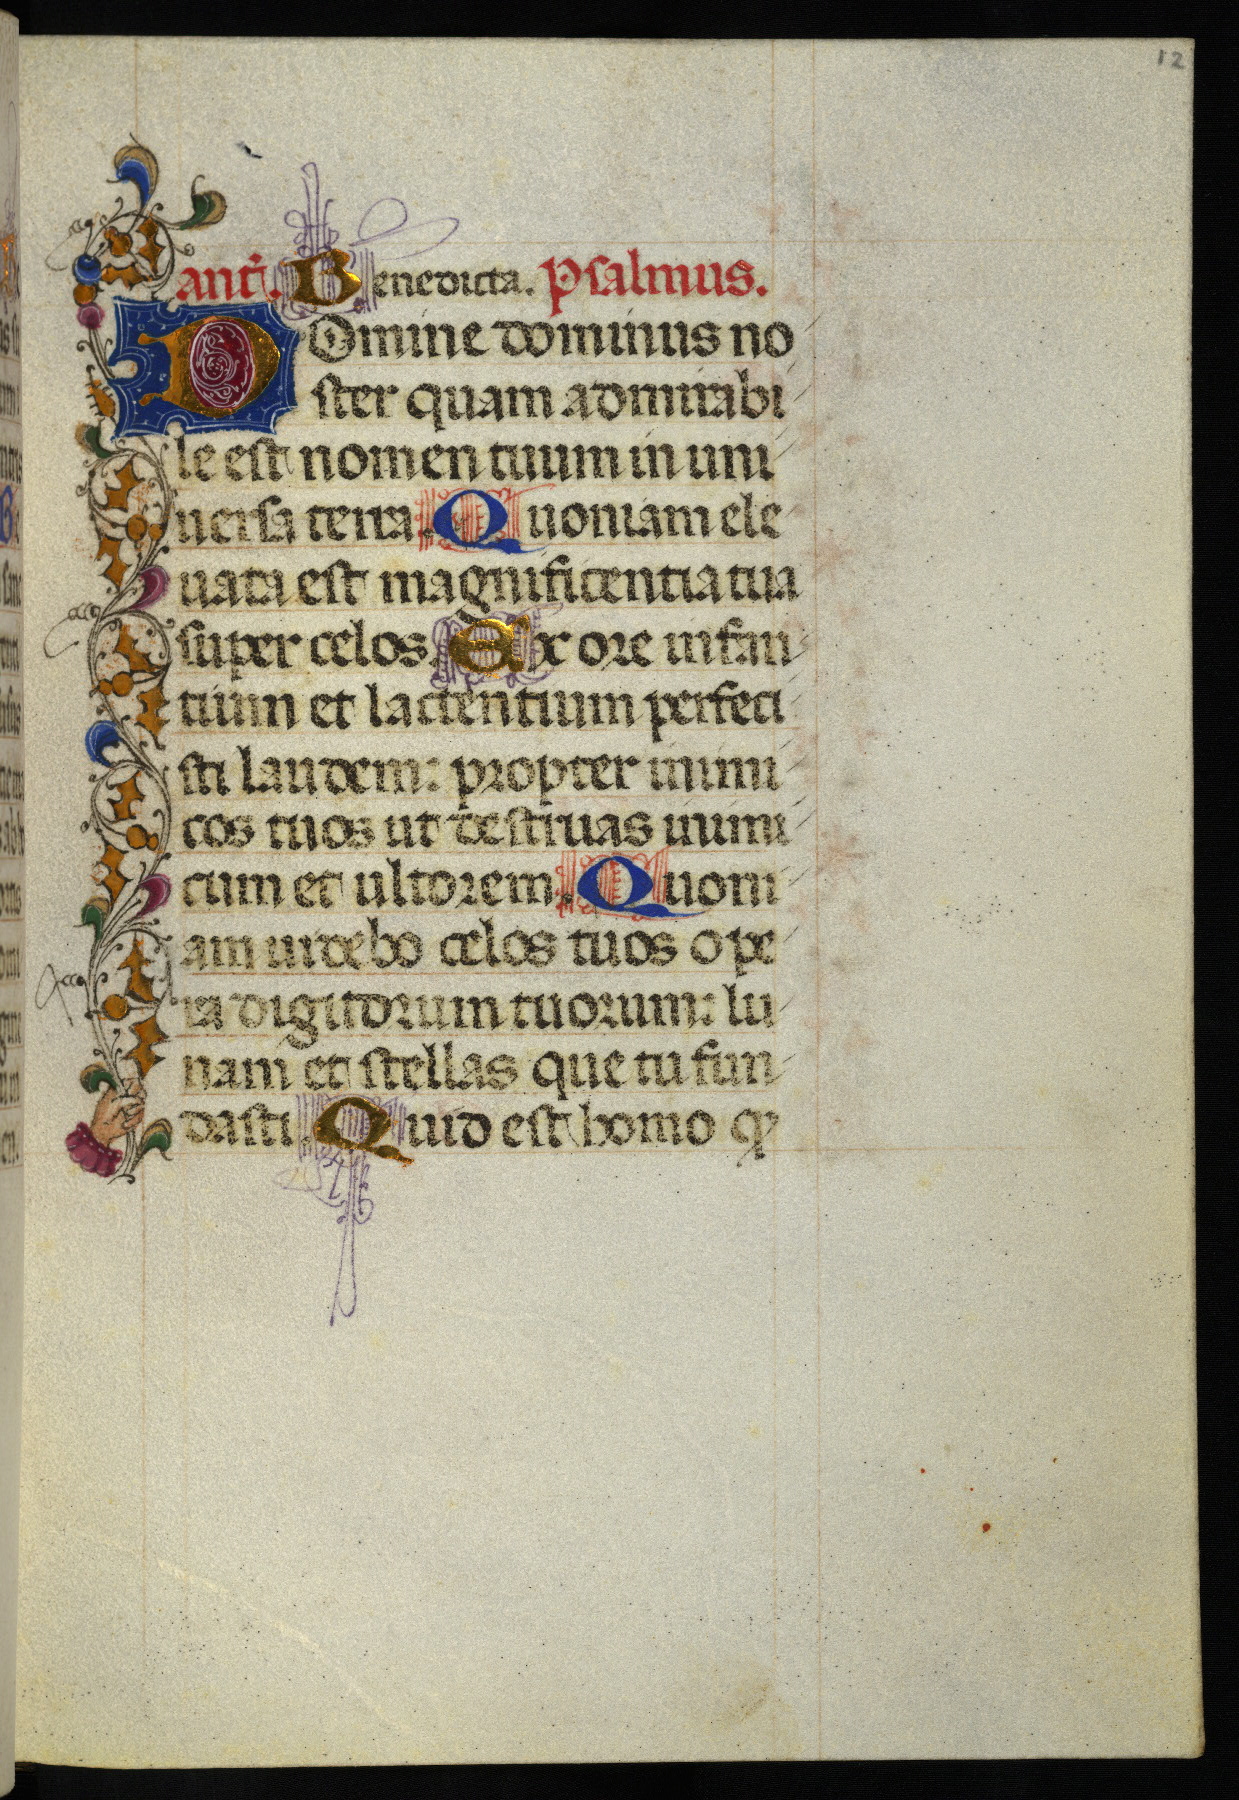 12
ant̄. Benedicta. Psalmus.
DOmine dominus no
ster quam admirabi
le est nomen tuum in uni
uersa terra. Quoniam ele
uata est magnificentia tua
super celos. Ex ore infan
tium et lactentium perfeci
sti laudem: propter inimi
cos tuos ut destruas inimi
cum et ultorem. Quoni
am uidebo celos tuos ope
ra digitorum tuorum: lu
nam et stellas que tu fun
dasti. Quid est homo ꝙ